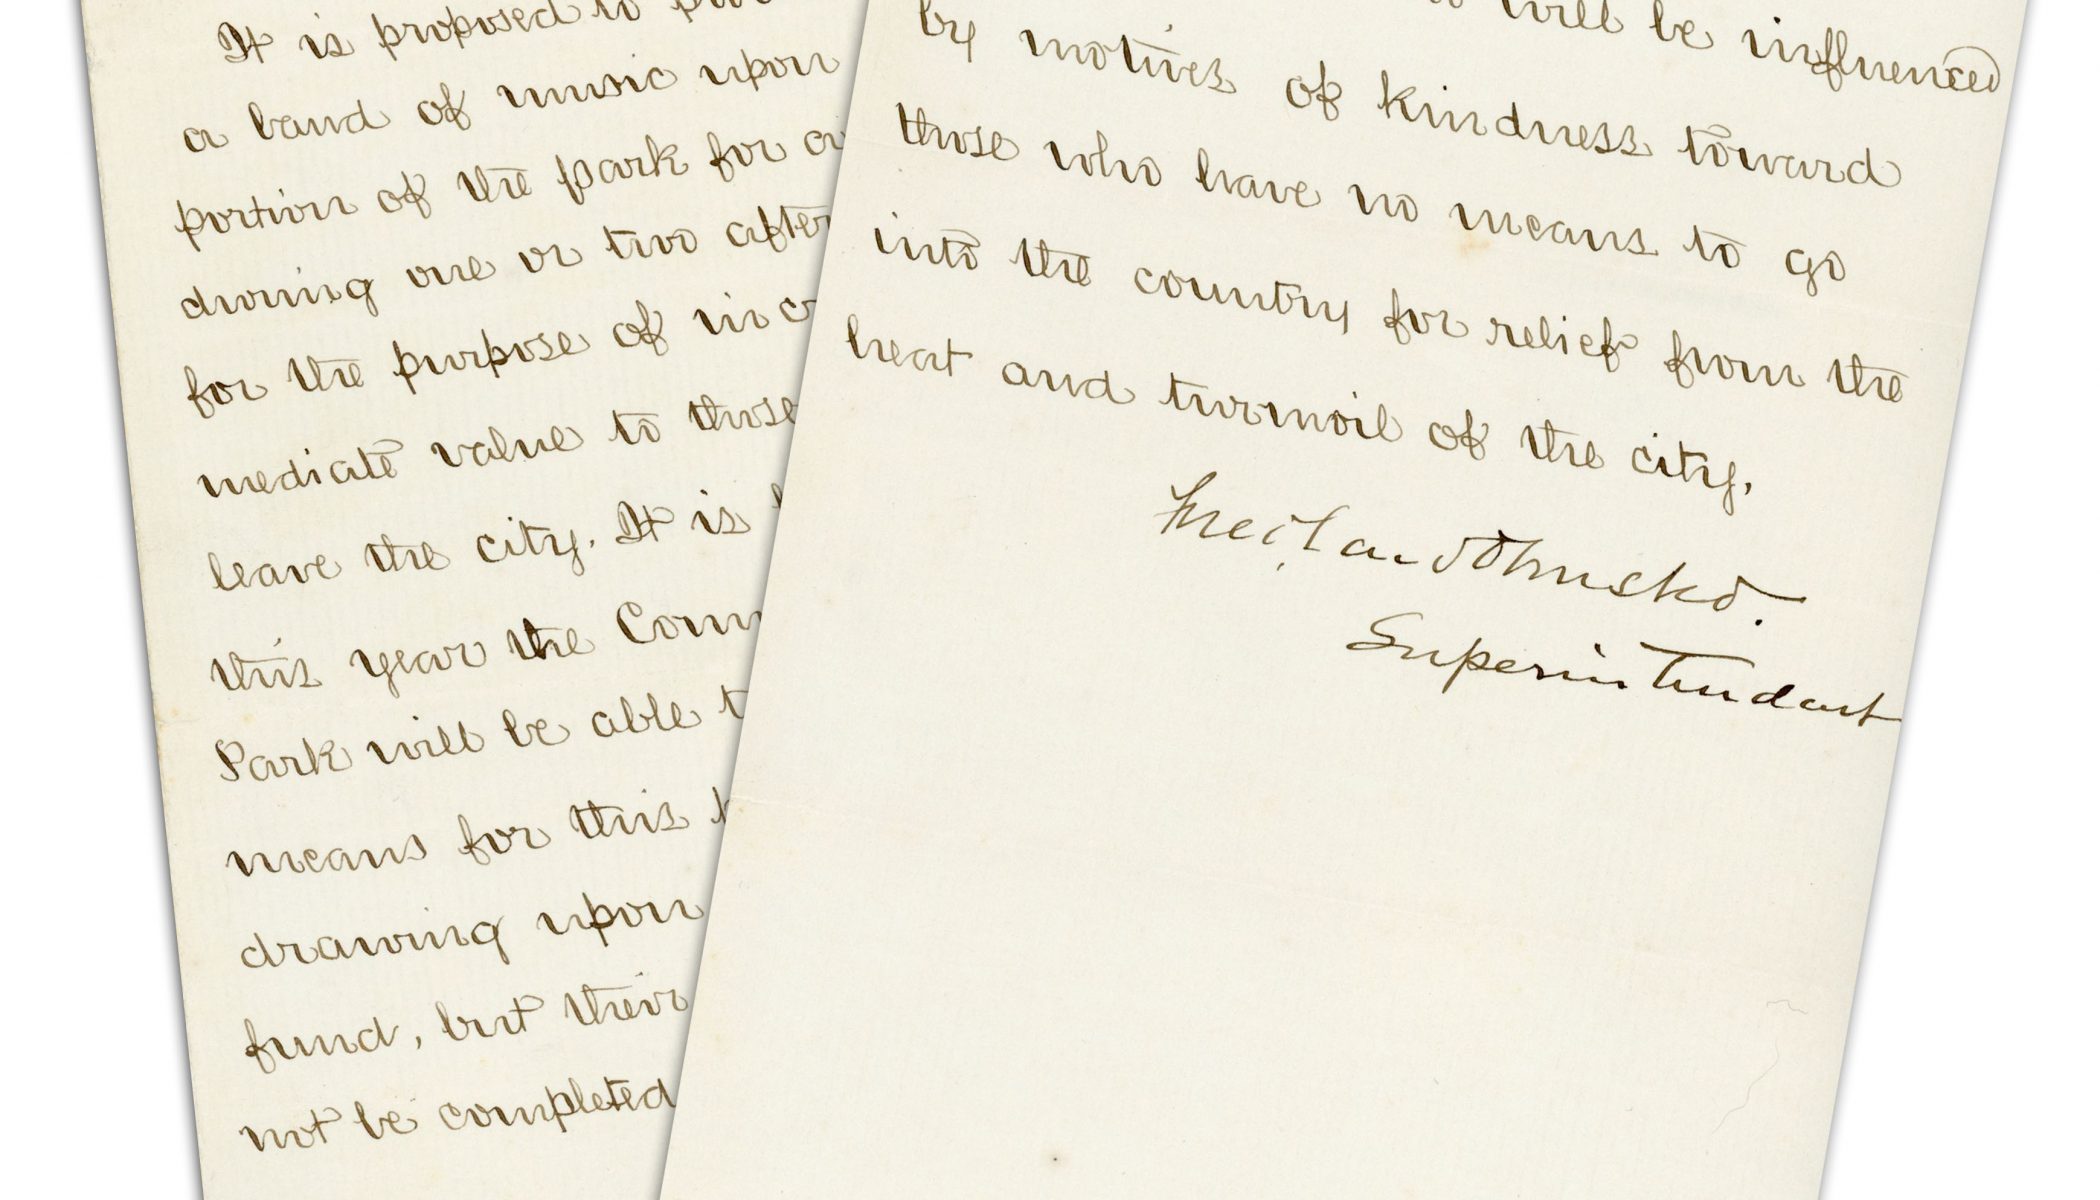 It is proposed to
a band of music upon
portion of the park for a
during one or two after
for the purpose of inc
mediate value to those
leave the city. It is
this year the Com
Park will be able t
means for this
drawing upon
fund, but their
not be completed
will be influenced
by motives of kindness toward
those who have no means to go
into the country for relief from the
heat and turmoil of the city.
Fred Law Olmsted.
Superintendent